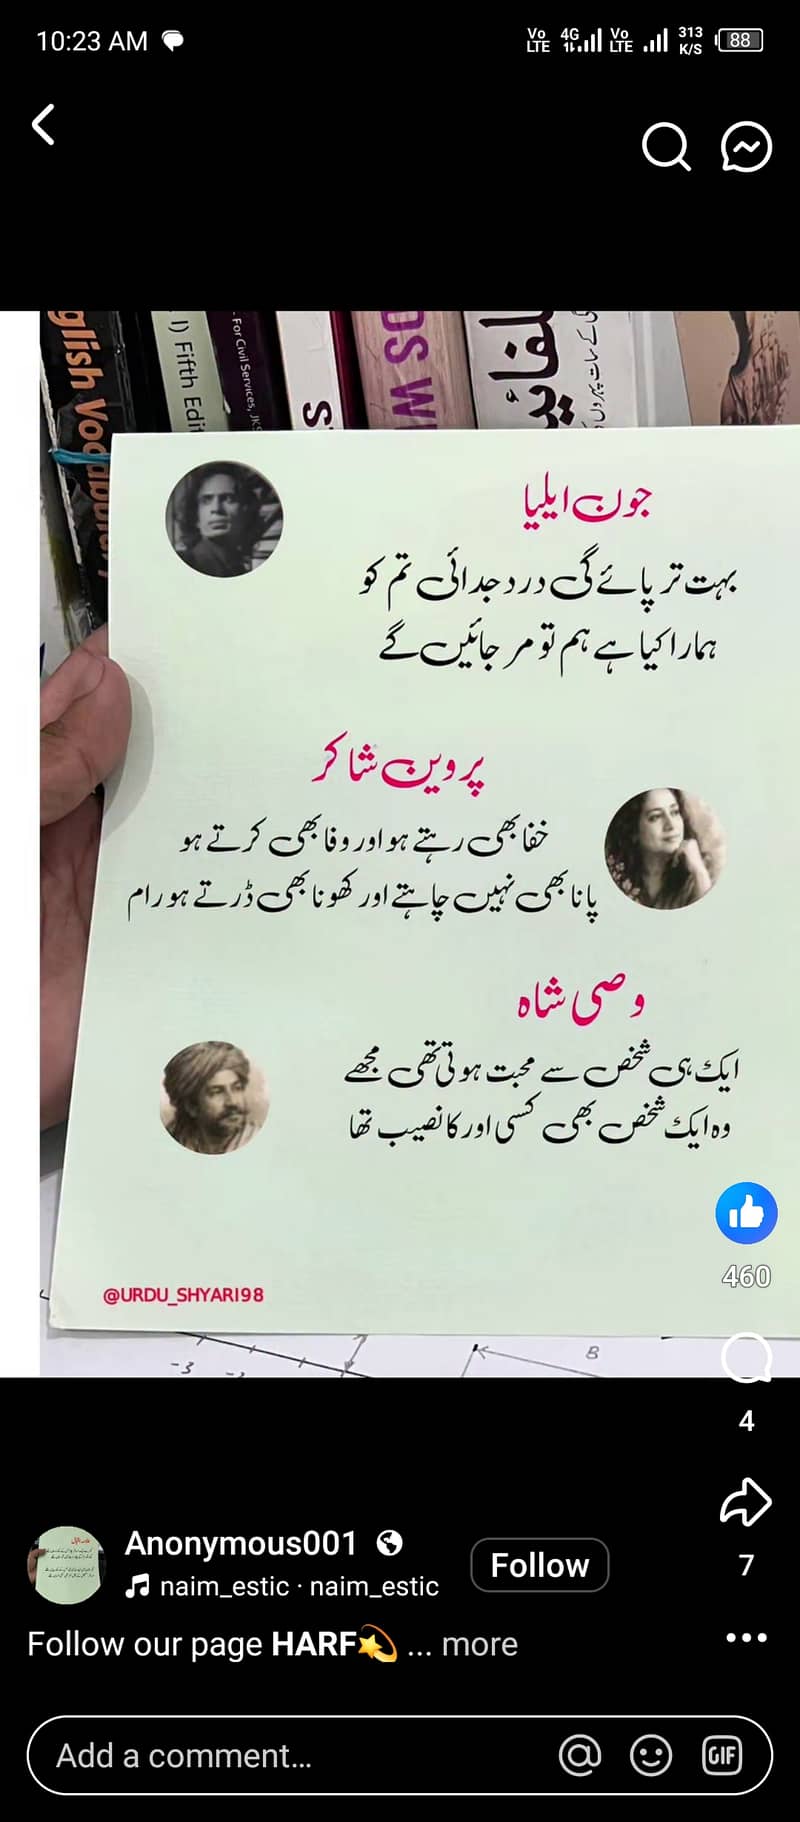 10:23 AM
Vo LTE 4G Vo LTE 313 K/S 88
glish Vocabulary
I) Fifth Edit
For Civil Services, JKS
S
WS
کے سات پہروں
جون ایلیا
بہت تڑپائے گی درد جدائی تم کو
ہمارا کیا ہے ہم تو مر جائیں گے
پروین شاکر
خفا بھی رہتے ہو اور وفا بھی کرتے ہو
پانا بھی نہیں چاہتے اور کھونا بھی ڈرتے ہو رام
وصی شاہ
ایک ہی شخص سے محبت ہوتی تھی مجھے
وہ ایک شخص بھی کسی اور کا نصیب تھا
@URDU_SHYARI98
-3
B
460
4
7
Anonymous001
naim_estic · naim_estic
Follow
Follow our page HARF💫 ... more
Add a comment...
GIF